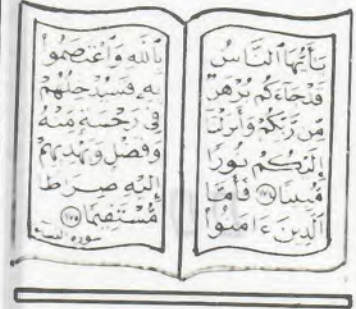 يَٰٓأَيُّهَا ٱلنَّاسُ
قَدۡ جَآءَكُم بُرۡهَٰنٞ
مِّن رَّبِّكُمۡ وَأَنزَلۡنَآ
إِلَيۡكُمۡ نُورٗا
مُّبِينٗا ١٧٤ فَأَمَّا
ٱلَّذِينَ ءَامَنُواْ
بِٱللَّهِ وَٱعۡتَصَمُواْ
بِهِۦ فَسَيُدۡخِلُهُمۡ
فِي رَحۡمَةٖ مِّنۡهُ
وَفَضۡلٖ وَيَهۡدِيهِمۡ
إِلَيۡهِ صِرَٰطٗا
مُّسۡتَقِيمٗا ١٧٥
سورة النساء